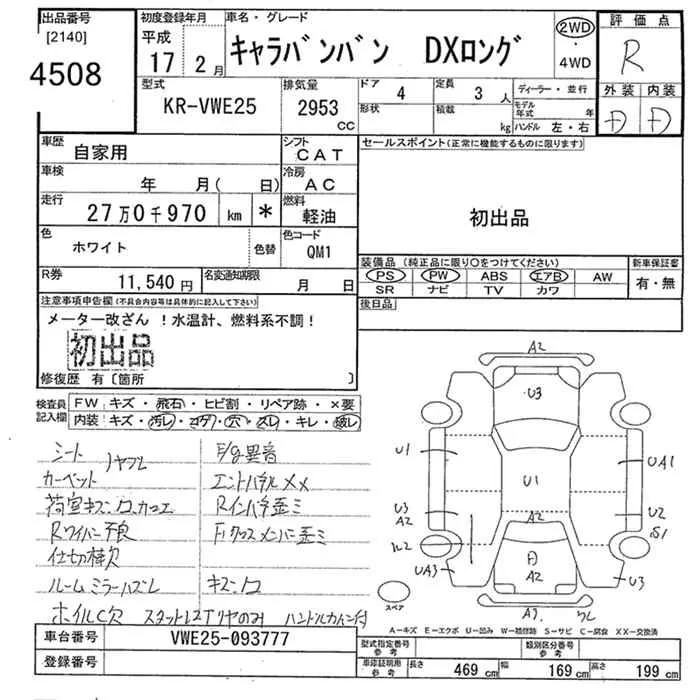 出品番号 [2140] 4508
初度登録年月 平成 17 2月
車名・グレード キャラバンバン DXロング
2WD・4WD
評価点 R
型式 KR-VWE25
排気量 2953 CC
ドア 4
形状
定員 3人
積載 kg
ディーラー・並行
モデル年式 年
ハンドル 左・右
外装 内装
D D
車歴 自家用
シフト CAT
セールスポイント(正常に機能するものに限ります)
初出品
車検 年 月( 日)
冷房 AC
走行 27万0千970 km *
燃料 軽油
色 ホワイト 色替
色コード QM1
装備品 (純正品に限り○をつけてください)
PS PW ABS エアB AW
SR ナビ TV カワ
新車保証書 有・無
R券 11,540円
名変通知期限 月 日
後日品
注意事項申告欄(不具合内容等は具体的に記入して下さい)
メーター改ざん !水温計、燃料系不調!
初出品
修復歴 有〔箇所 〕
検査員記入欄
FW キズ・飛石・ヒビ割・リペア跡・×要
内装 キズ・汚レ・コゲ・穴・スレ・キレ・破レ
シート ハヤブレ F/g異音
カーペット エンドパネルXX
荷室キズ・凹、カコエ Rインパネ歪ミ
Rワイパー不良 Fクロスメンバー歪ミ
仕切棒欠
ルームミラーハズレ キズ・凹
ホイルC欠 スタットレスTリヤのみ ハンドルカバー付
A2
U3
U1
UA1
U1
U3
A2
A2
U2
S1
UA3
D
A2
U3
スペア
A-キズ E-エクボ U-凹み W-補修跡 S-サビ C-腐食 XX-交換済
車台番号 VWE25-093777
登録番号
型式指定番号 参考
類別区分番号 参考
車庫証明用 参考
長さ 469 cm 幅 169 cm 高さ 199 cm